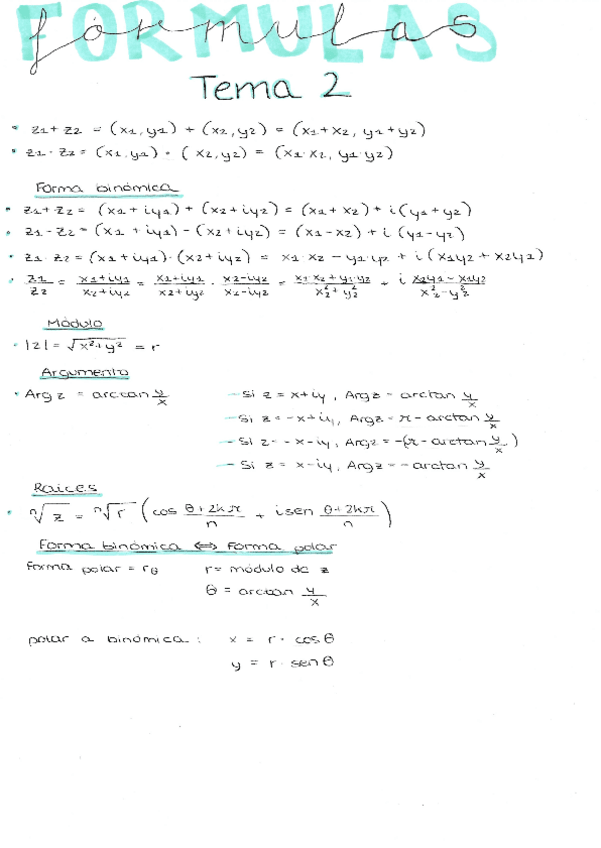 FORMULAS
fórmulas
Tema 2
• z1 + z2 = (x1, y1) + (x2, y2) = (x1 + x2, y1 + y2)
• z1 · z2 = (x1, y1) · (x2, y2) = (x1 · x2, y1 · y2)
Forma binómica
• z1 + z2 = (x1 + iy1) + (x2 + iy2) = (x1 + x2) + i(y1 + y2)
• z1 - z2 = (x1 + iy1) - (x2 + iy2) = (x1 - x2) + i(y1 - y2)
• z1 · z2 = (x1 + iy1) · (x2 + iy2) = x1 · x2 - y1 · y2 + i(x1y2 + x2y1)
• z1/z2 = x1 + iy1/x2 + iy2 = x1 + iy1/x2 + iy2 · x2 - iy2/x2 - iy2 = x1 · x2 + y1 · y2/x2² + y2² + i x2y1 - x1y2/x2² - y2²
Módulo
• |z| = √x² + y² = r
Argumento
• Arg z = arctan y/x
- Si z = x + iy, Arg z = arctan y/x
- Si z = -x + iy, Arg z = π - arctan y/x
- Si z = -x - iy, Arg z = -(π - arctan y/x)
- Si z = x - iy, Arg z = - arctan y/x
Raíces
• ⁿ√z = ⁿ√r (cos θ + 2kπ/n + i sen θ + 2kπ/n)
Forma binómica ⇔ forma polar
forma polar = rθ r = módulo de z
θ = arctan y/x
polar a binómica: x = r · cos θ
y = r · sen θ